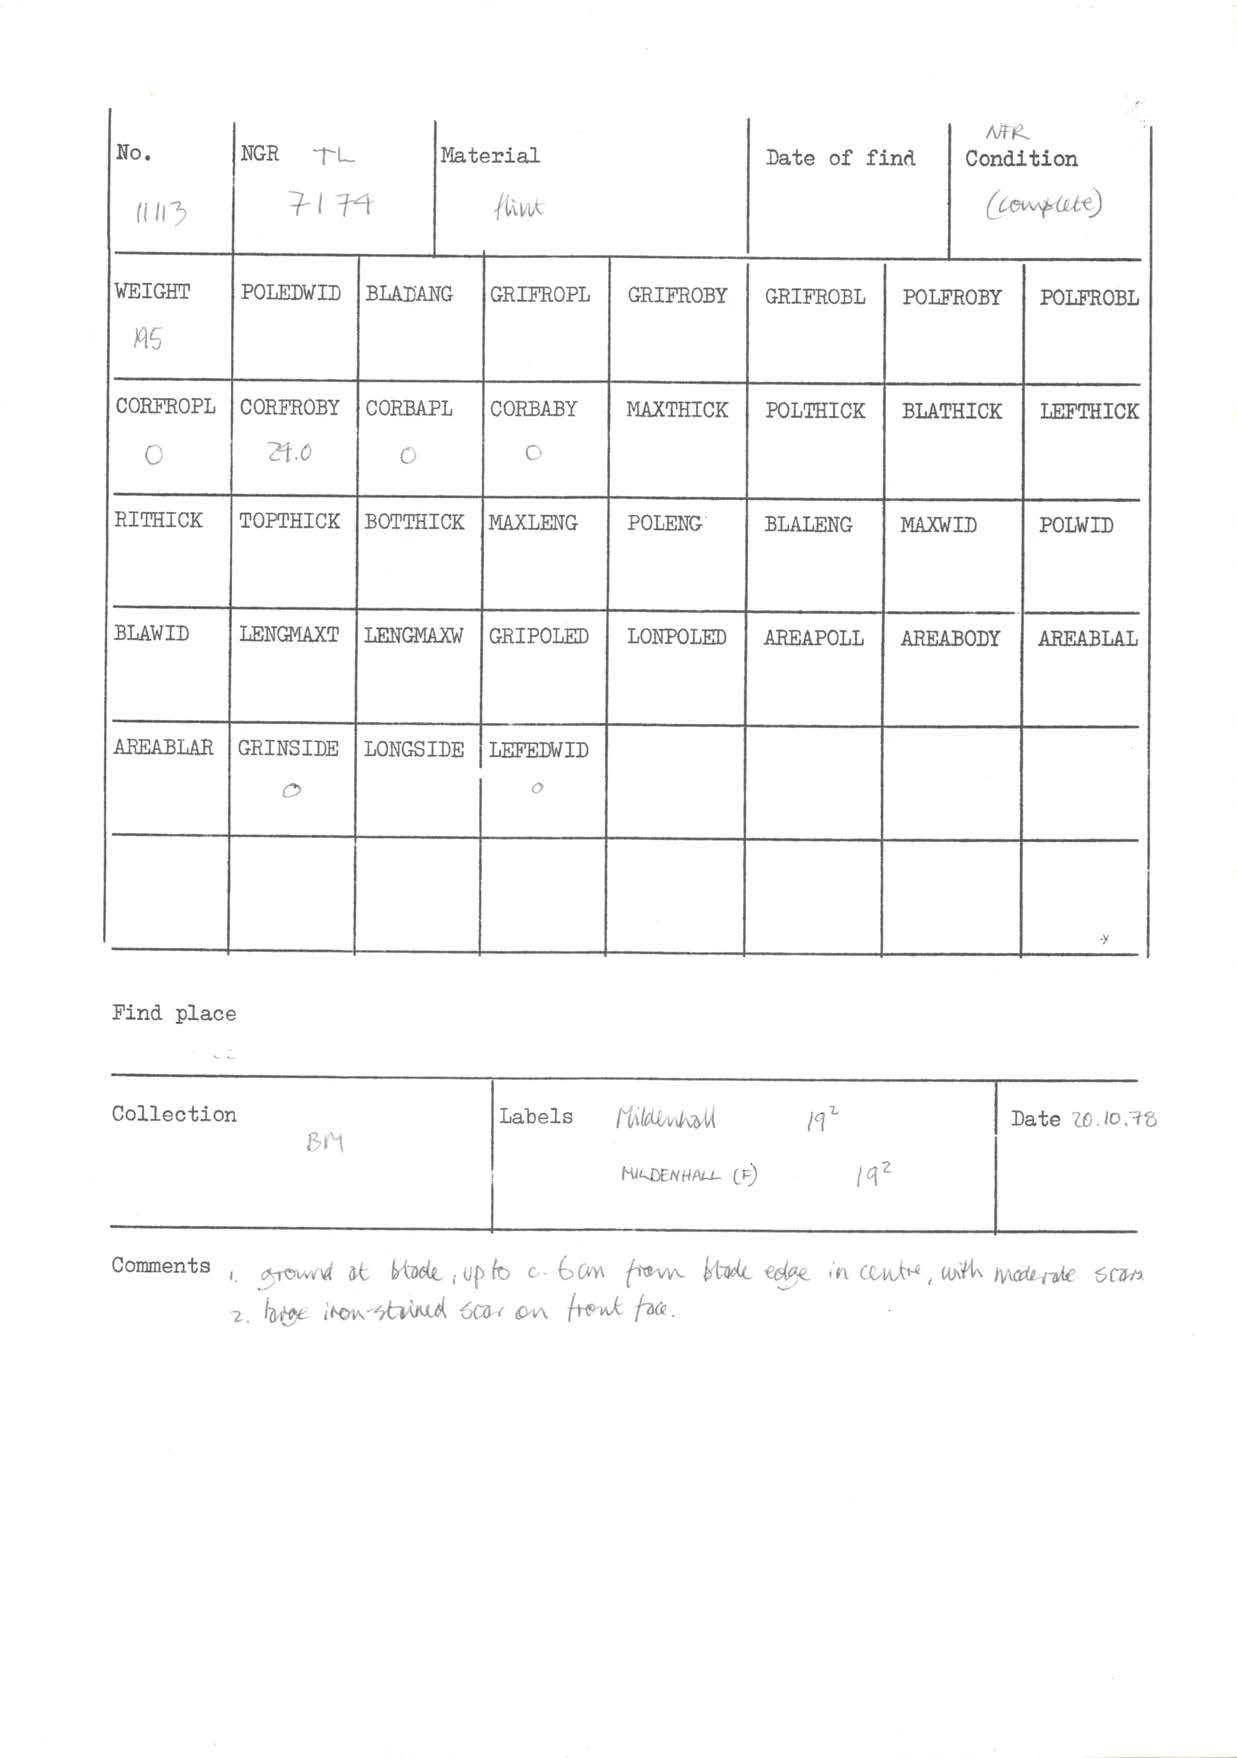 NFR
No. NGR TL Material Date of find Condition
11113 7174 flint (complete)
WEIGHT POLEDWID BLADANG GRIFROPL GRIFROBY GRIFROBL POLFROBY POLFROBL
195
CORFROPL CORFROBY CORBAPL CORBABY MAXTHICK POLTHICK BLATHICK LEFTHICK
0 24.0 0 0
RITHICK TOPTHICK BOTTHICK MAXLENG POLENG BLALENG MAXWID POLWID
BLAWID LENGMAXT LENGMAXW GRIPOLED LONPOLED AREAPOLL AREABODY AREABLAL
AREABLAR GRINSIDE LONGSIDE LEFEDWID
0 0
Find place
Collection Labels Mildenhall 19² Date 20.10.78
BM
MILDENHALL (F) 19²
Comments 1. ground at blade, up to c. 6cm from blade edge in centre, with moderate scars
2. large iron-stained scar on front face.